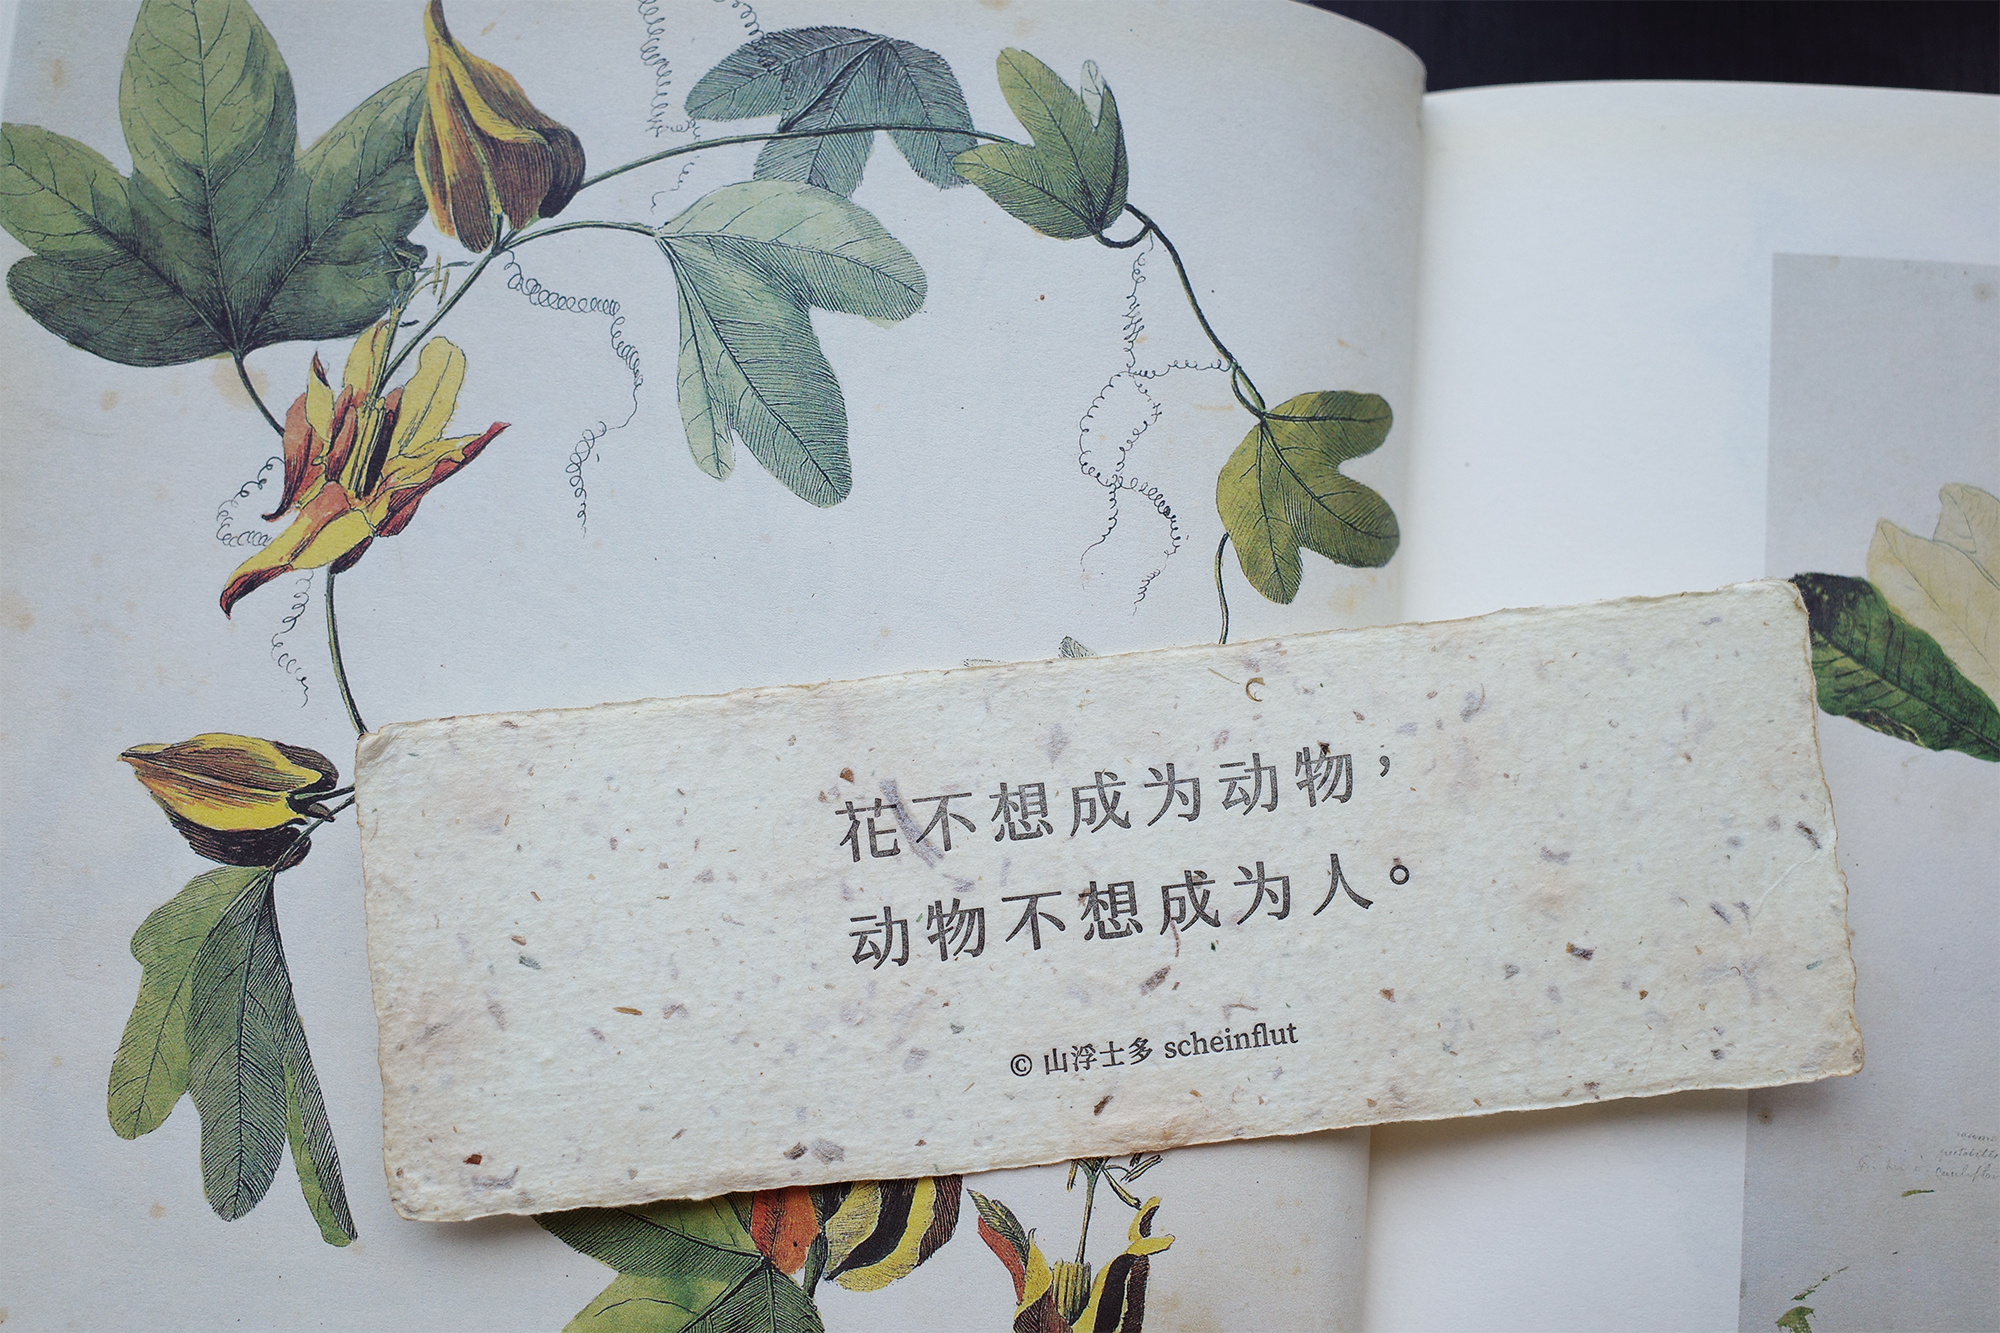 花不想成为动物，
动物不想成为人。
© 山浮士多 scheinflut